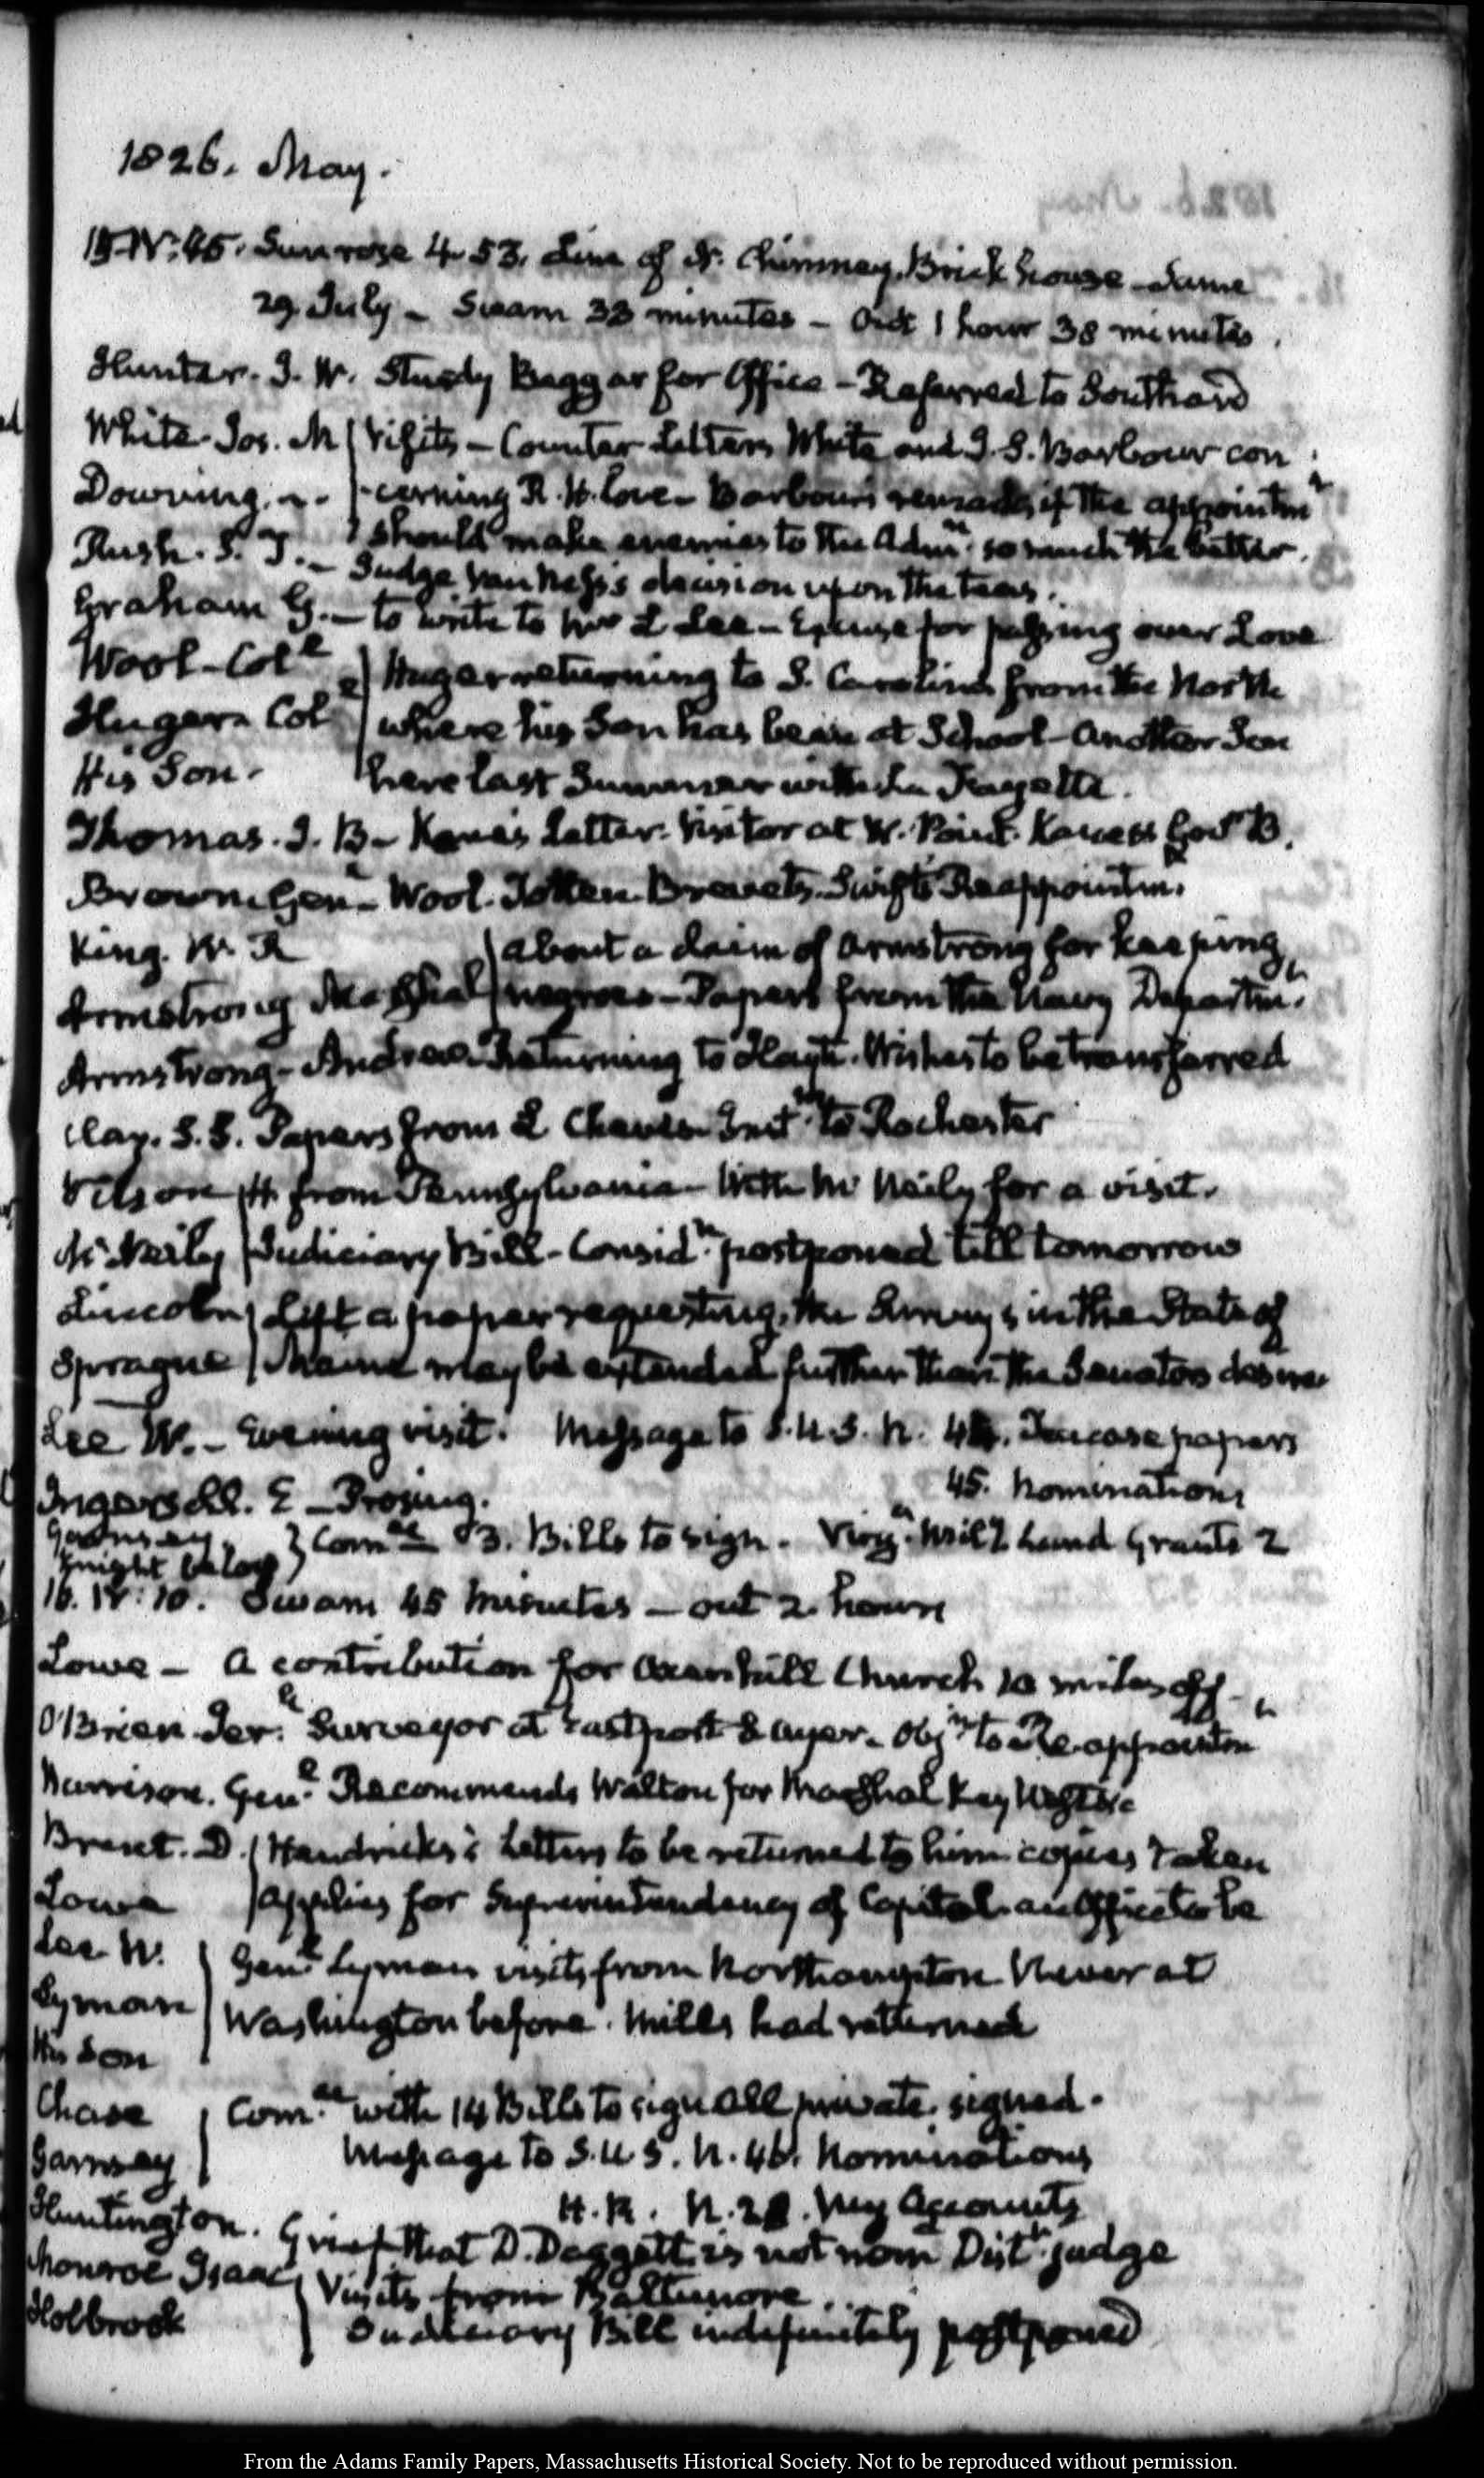 1826. May.
15. IV: 45. Sun rose 4. 53. Line of N. Chimney, Brick house - Same
29 July - Swam 33 minutes - Out 1 hour 38 minutes.
Hunter. J. W. Study Beggar for Office - Referred to Southard
White. Jos. M Visits - Counter Letters White and J. S. Barbour con
Downing. cerning R. H. Love - Barbour's remark, if the appointmt
should make enemies to the Admn. so much the better.
Rush. S. T. - Judge Van Ness's decision upon the teas.
Graham G. - to write to Lee - for passing over Love
Wool - Coll Huger returning to S. Carolina from the North
Huger - Coll where his Son has been at School - Another Son
His Son. here last Summer with La Fayette.
Thomas. J. B - Kane's Letter. Visitor at W. Point.
Brown Genl - Wool. Totten Brevets. Swift's Reappointmt.
King. W. R about a claim of Armstrong for keeping
Armstrong Marshal negroes - Papers from the Navy Departmt.
Armstrong - Andrew Returning to Hayti. Wishes to be transferred
Clay. S. S. Papers from to Rochester
H. from Pennsylvania - With Mc Neily for a visit.
Mc Neily Judiciary Bill - Considn. postponed till tomorrow
Lincoln Left a paper requesting, the Surveys in the State of
Sprague Maine may be extended further than the Senators desire
Lee W. - Evening visit. Message to S. U. S. N. 44. papers
45. Nominations
Ingersoll. E - Prosing.
Garnsey
Comee 3. Bills to sign. Virga. Mily Land Grants 2
16. IV: 10. Swam 45 minutes - out 2 hours
Lowe - A contribution for Church 10 miles off
O'Brien Jerh. Surveyor at Eastport & Ayer. Objn to Re-appointmt
Harrison. Genl. Recommends Walton for Marshal Key West &c
Brent. D. Hendricks's Letters to be returned to him copies taken
Lowe applies for Superintendency of Capitol. an Office to be
Lee W. Genl Lyman visits from Northampton Never at
Lyman Washington before. Mills had returned
His Son
Chase Comee with 14 Bills to sign all private. signed.
Garnsey Message to S. U S. N. 46. Nominations
H. R. N. My Accounts
Huntington. Grief that D. Daggett is not nomd Distt. judge
Monroe Isaac Visits from Baltimore.
Holbrook Judiciary Bill indefinitely postponed
From the Adams Family Papers, Massachusetts Historical Society. Not to be reproduced without permission.